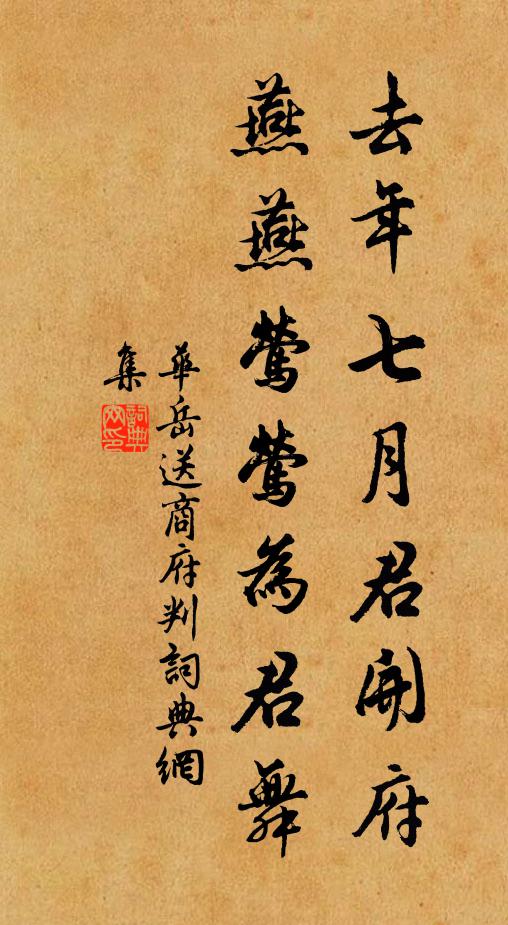 去年七月君開府
燕燕鶯鶯為君舞
華岳送商府判詞典網
集
詞典
网印